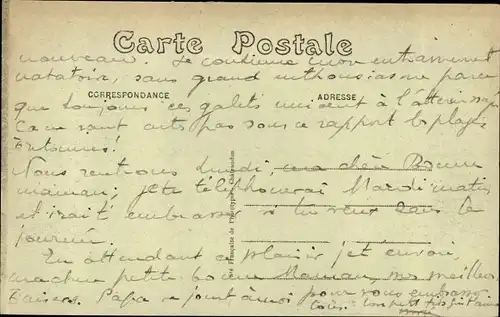 Carte Postale
nouveau. Je continue mon entraînement
natatoire, sans grand enthousiasme parce
CORRESPONDANCE ADRESSE
que toujours ces galets nuisent à l'atterrissage
Ça ne vaut certes pas sous ce rapport la plage
Nous rentrons lundi, ma chère Bonne
maman; je te téléphonerai Mardi matin
et irai t'embrasser si tu veux dans la
journée.
En attendant ce plaisir je t'envoie,
ma chère petite bonne Maman mes meilleurs
Baisers. Papa se joint à moi pour vous embrasser
tous.
Sté Française de Phototypie